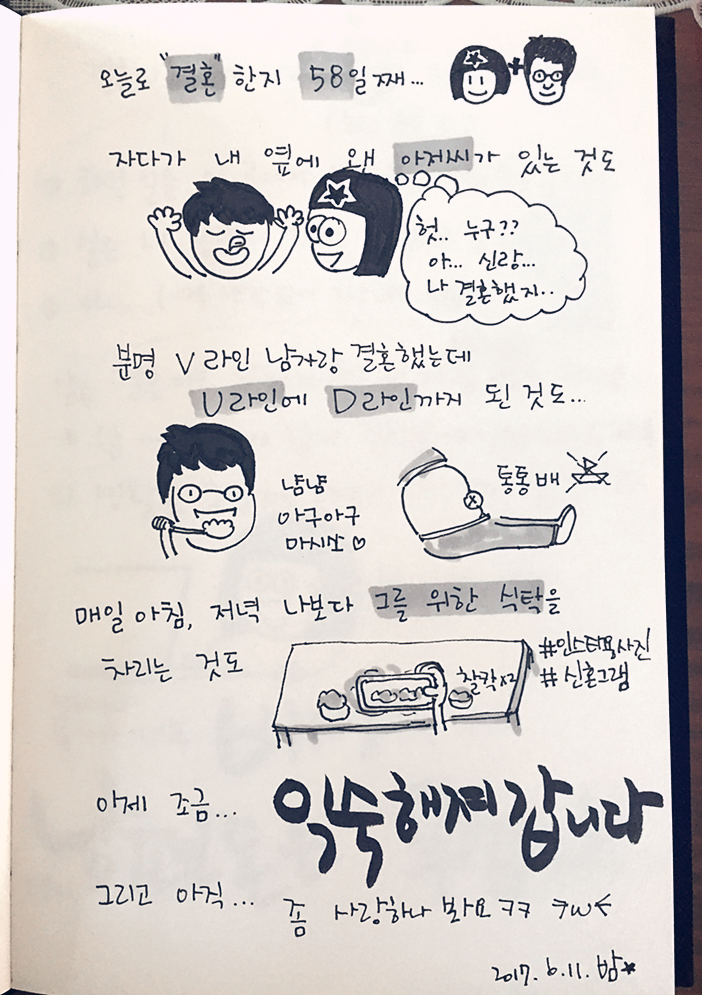 오늘로 "결혼" 한지 58일째...
자다가 내 옆에 왠 아저씨가 있는 것도
헛.. 누구??
아... 신랑...
나 결혼했지..
분명 V라인 남자랑 결혼했는데
U라인에 D라인까지 된 것도...
냠냠
아구아구
마시쏘♡
통통배
매일 아침, 저녁 나보다 그를 위한 식탁을
차리는 것도
찰칵x2
#인스타용사진
#신혼그램
이제 조금...
익숙해져 갑니다
그리고 아직...
좀 사랑하나 봐요 ㅋㅋ >w<
2017. 6. 11. 밤★